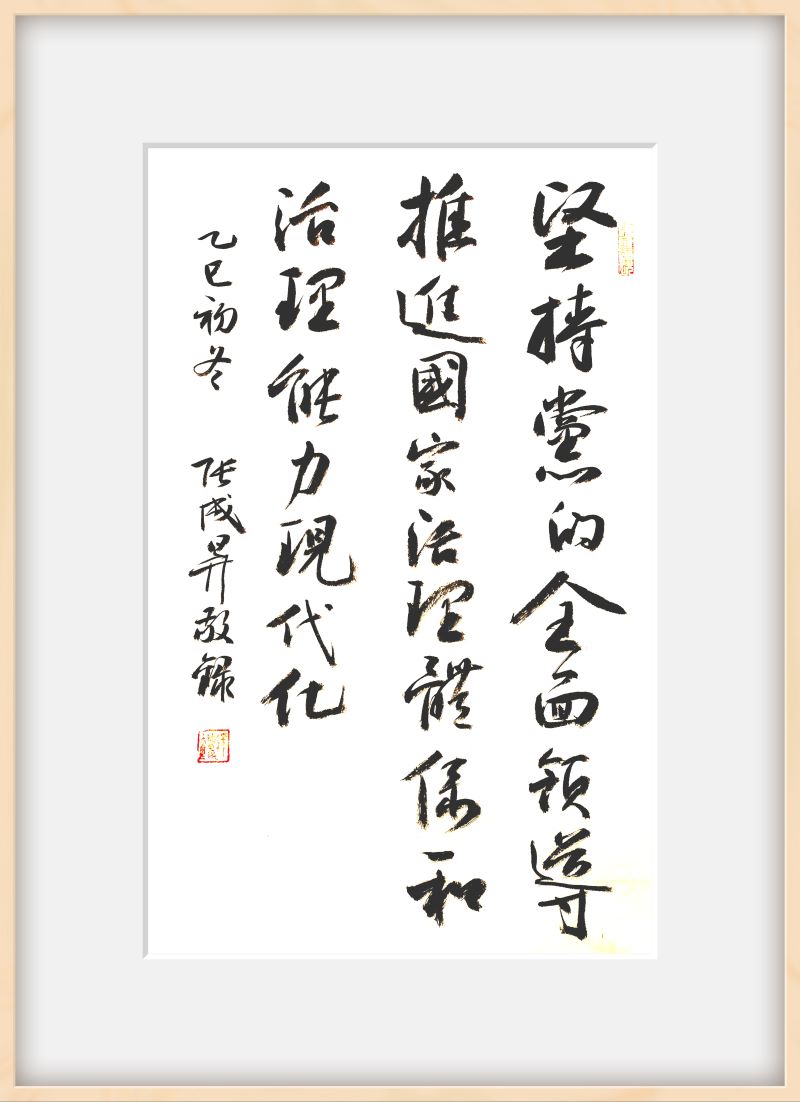 坚持黨的全面領導
推進國家治理體係和
治理能力現代化
乙巳初冬 張成昇敬録